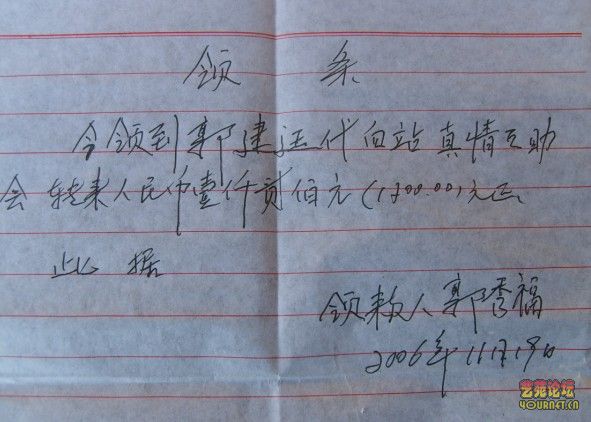 领 条
今领到郭建征代向站真情互助
会转来人民币壹仟贰佰元(1200.00)元正
此 据
领款人郭秀福
2006年11月19日
艺苑论坛
4OURNET.CN